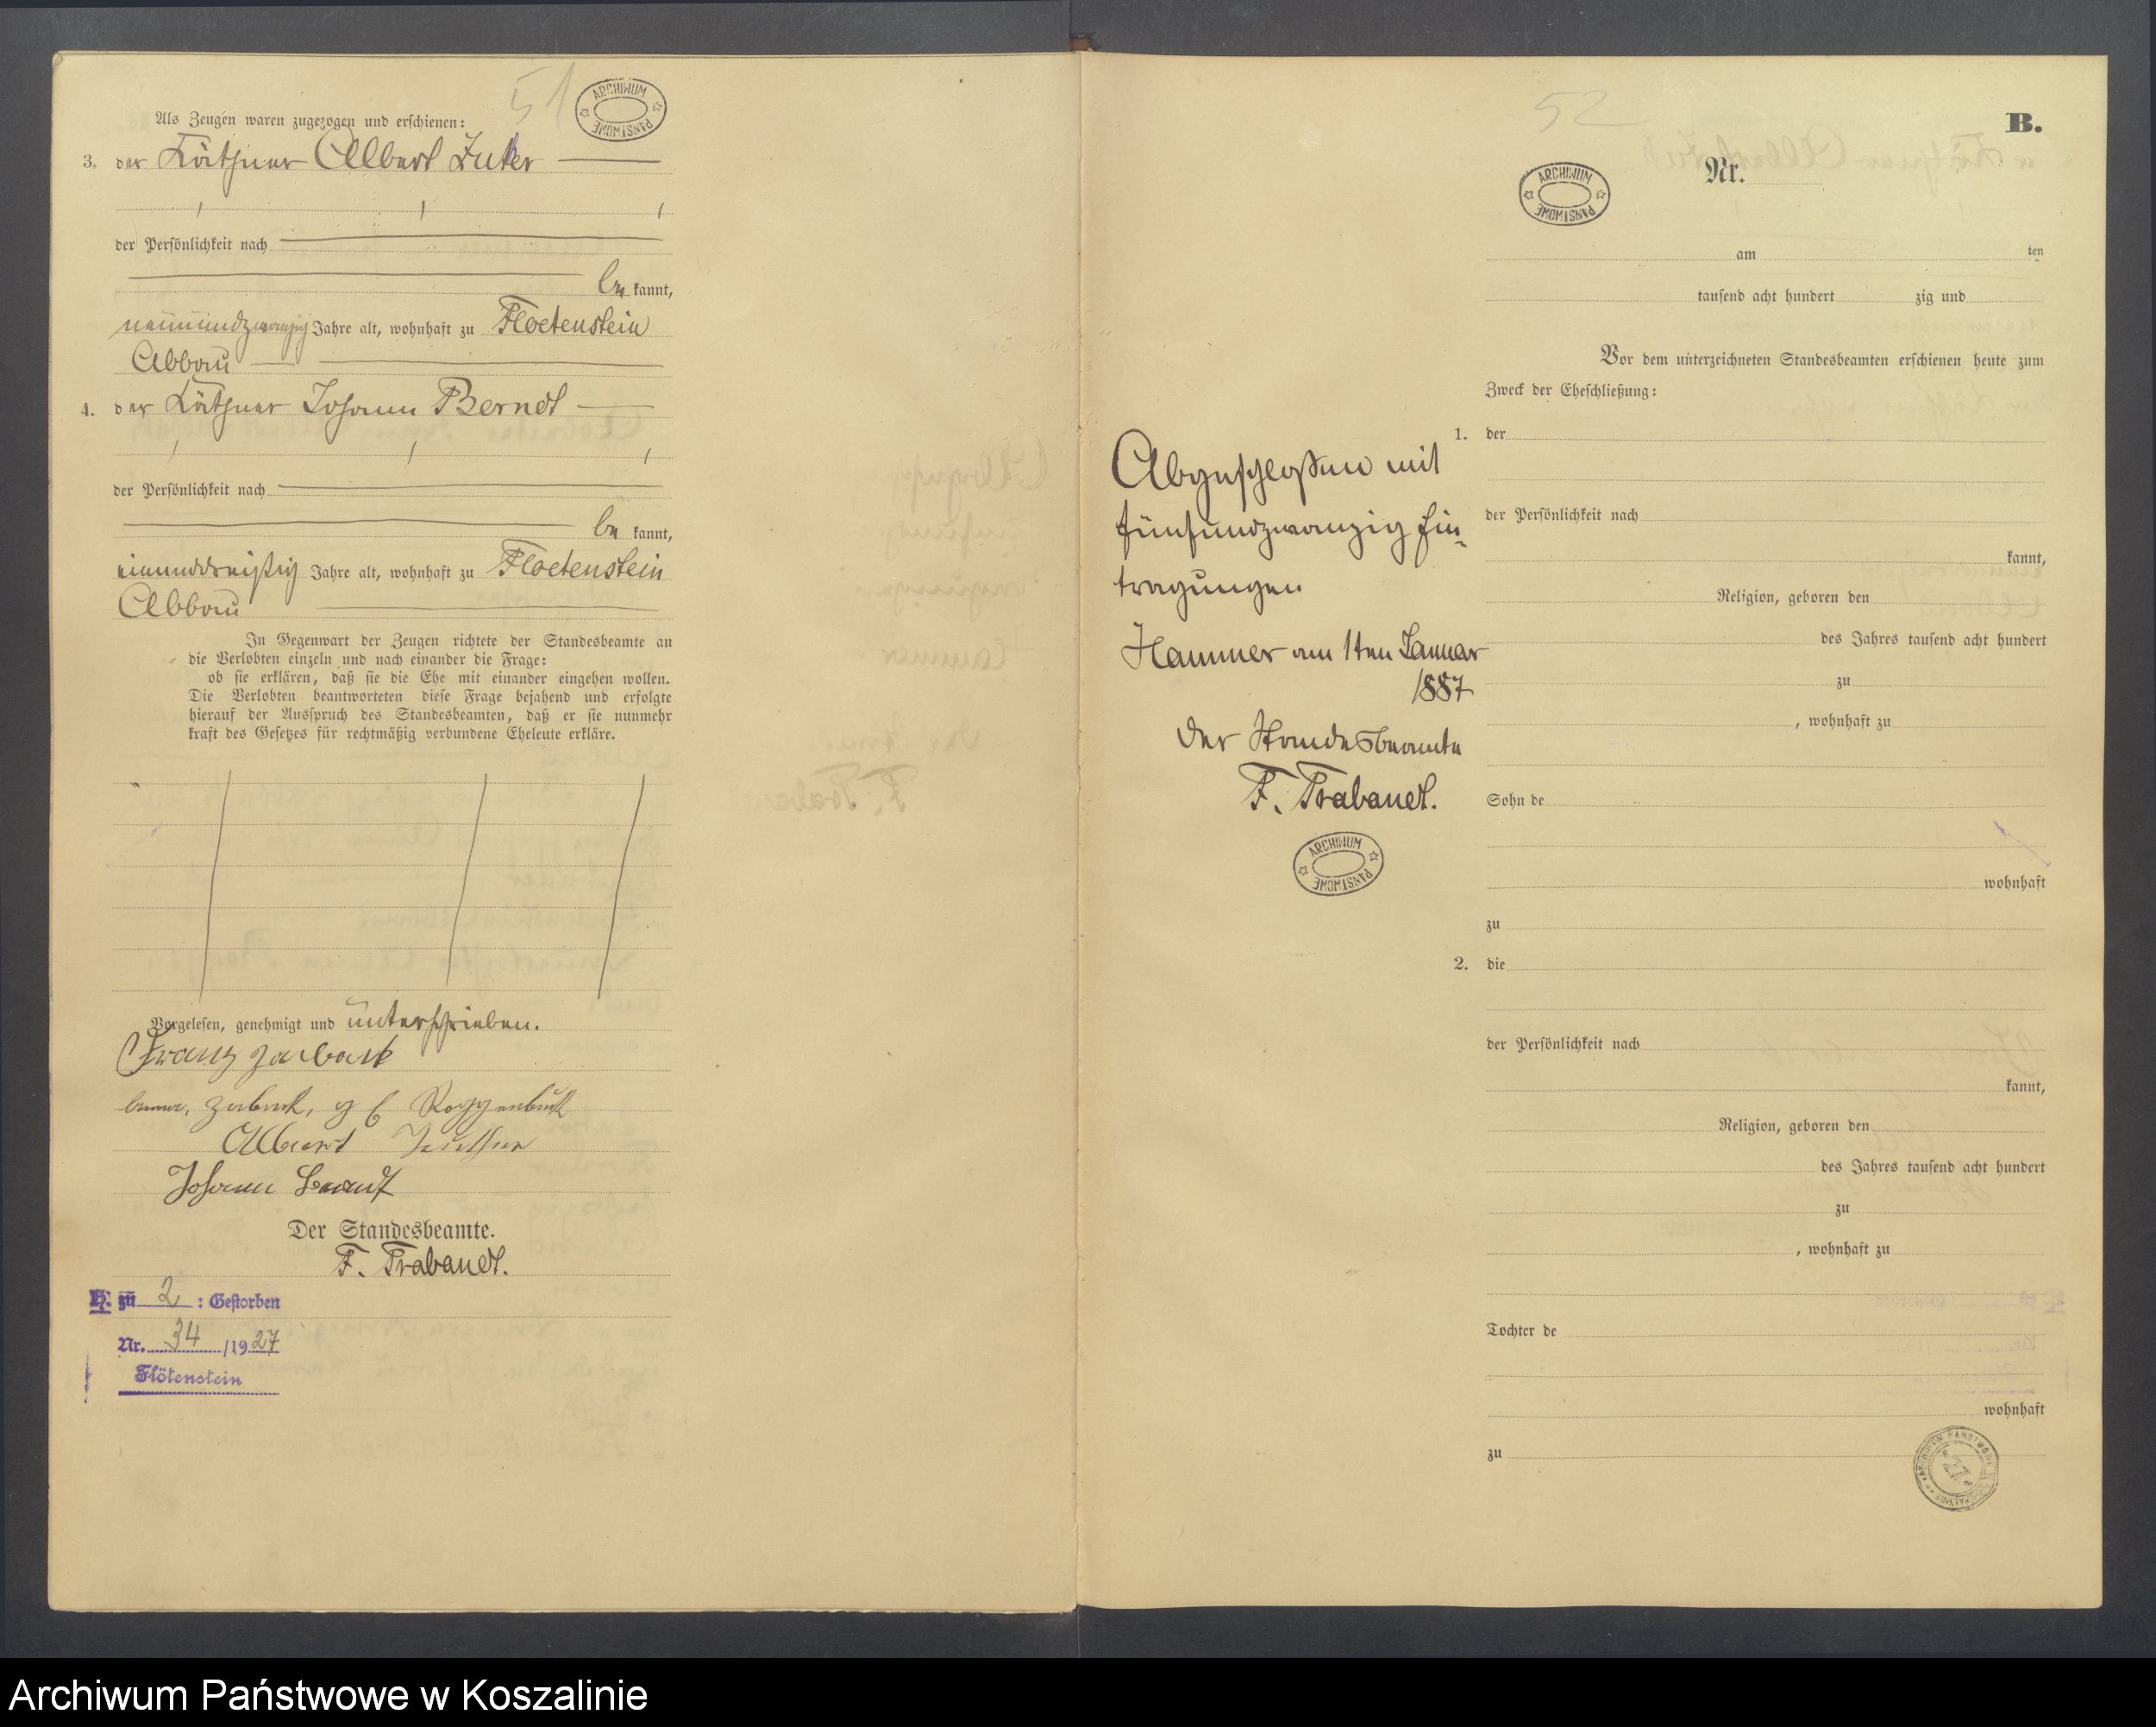 51
ARCHIWUM PAŃSTWOWE
Als Zeugen waren zugezogen und erschienen:
3. der Käthner Albert Zuther
der Persönlichkeit nach
be kannt,
neunundzwanzig Jahre alt, wohnhaft zu Floetenstein
Abbau
4. der Käthner Johann Berndt
der Persönlichkeit nach
be kannt,
einunddreißig Jahre alt, wohnhaft zu Floetenstein
Abbau
In Gegenwart der Zeugen richtete der Standesbeamte an
die Verlobten einzeln und nach einander die Frage:
ob sie erklären, daß sie die Ehe mit einander eingehen wollen.
Die Verlobten beantworteten diese Frage bejahend und erfolgte
hierauf der Ausspruch des Standesbeamten, daß er sie nunmehr
kraft des Gesetzes für rechtmäßig verbundene Eheleute erkläre.
Vorgelesen, genehmigt und unterschrieben.
Franz
Roggenbuck
Albert
Johann
Der Standesbeamte.
F. Trabandt.
H. zu 2 : Gestorben
Nr. 34 /1927
Flötenstein
52
B.
ARCHIWUM PAŃSTWOWE
Nr.
am ten
tausend acht hundert zig und
Vor dem unterzeichneten Standesbeamten erschienen heute zum
Zweck der Eheschließung:
1. der
der Persönlichkeit nach
kannt,
Religion, geboren den
des Jahres tausend acht hundert
zu
, wohnhaft zu
Sohn de
wohnhaft
zu
2. die
der Persönlichkeit nach
kannt,
Religion, geboren den
des Jahres tausend acht hundert
zu
, wohnhaft zu
Tochter de
wohnhaft
zu
Abgeschlossen mit
fünfundzwanzig Ein-
tragungen
Hammer am 1ten Januar
1887
Der Standesbeamte
F. Trabandt.
ARCHIWUM PAŃSTWOWE
Archiwum Państwowe w Koszalinie